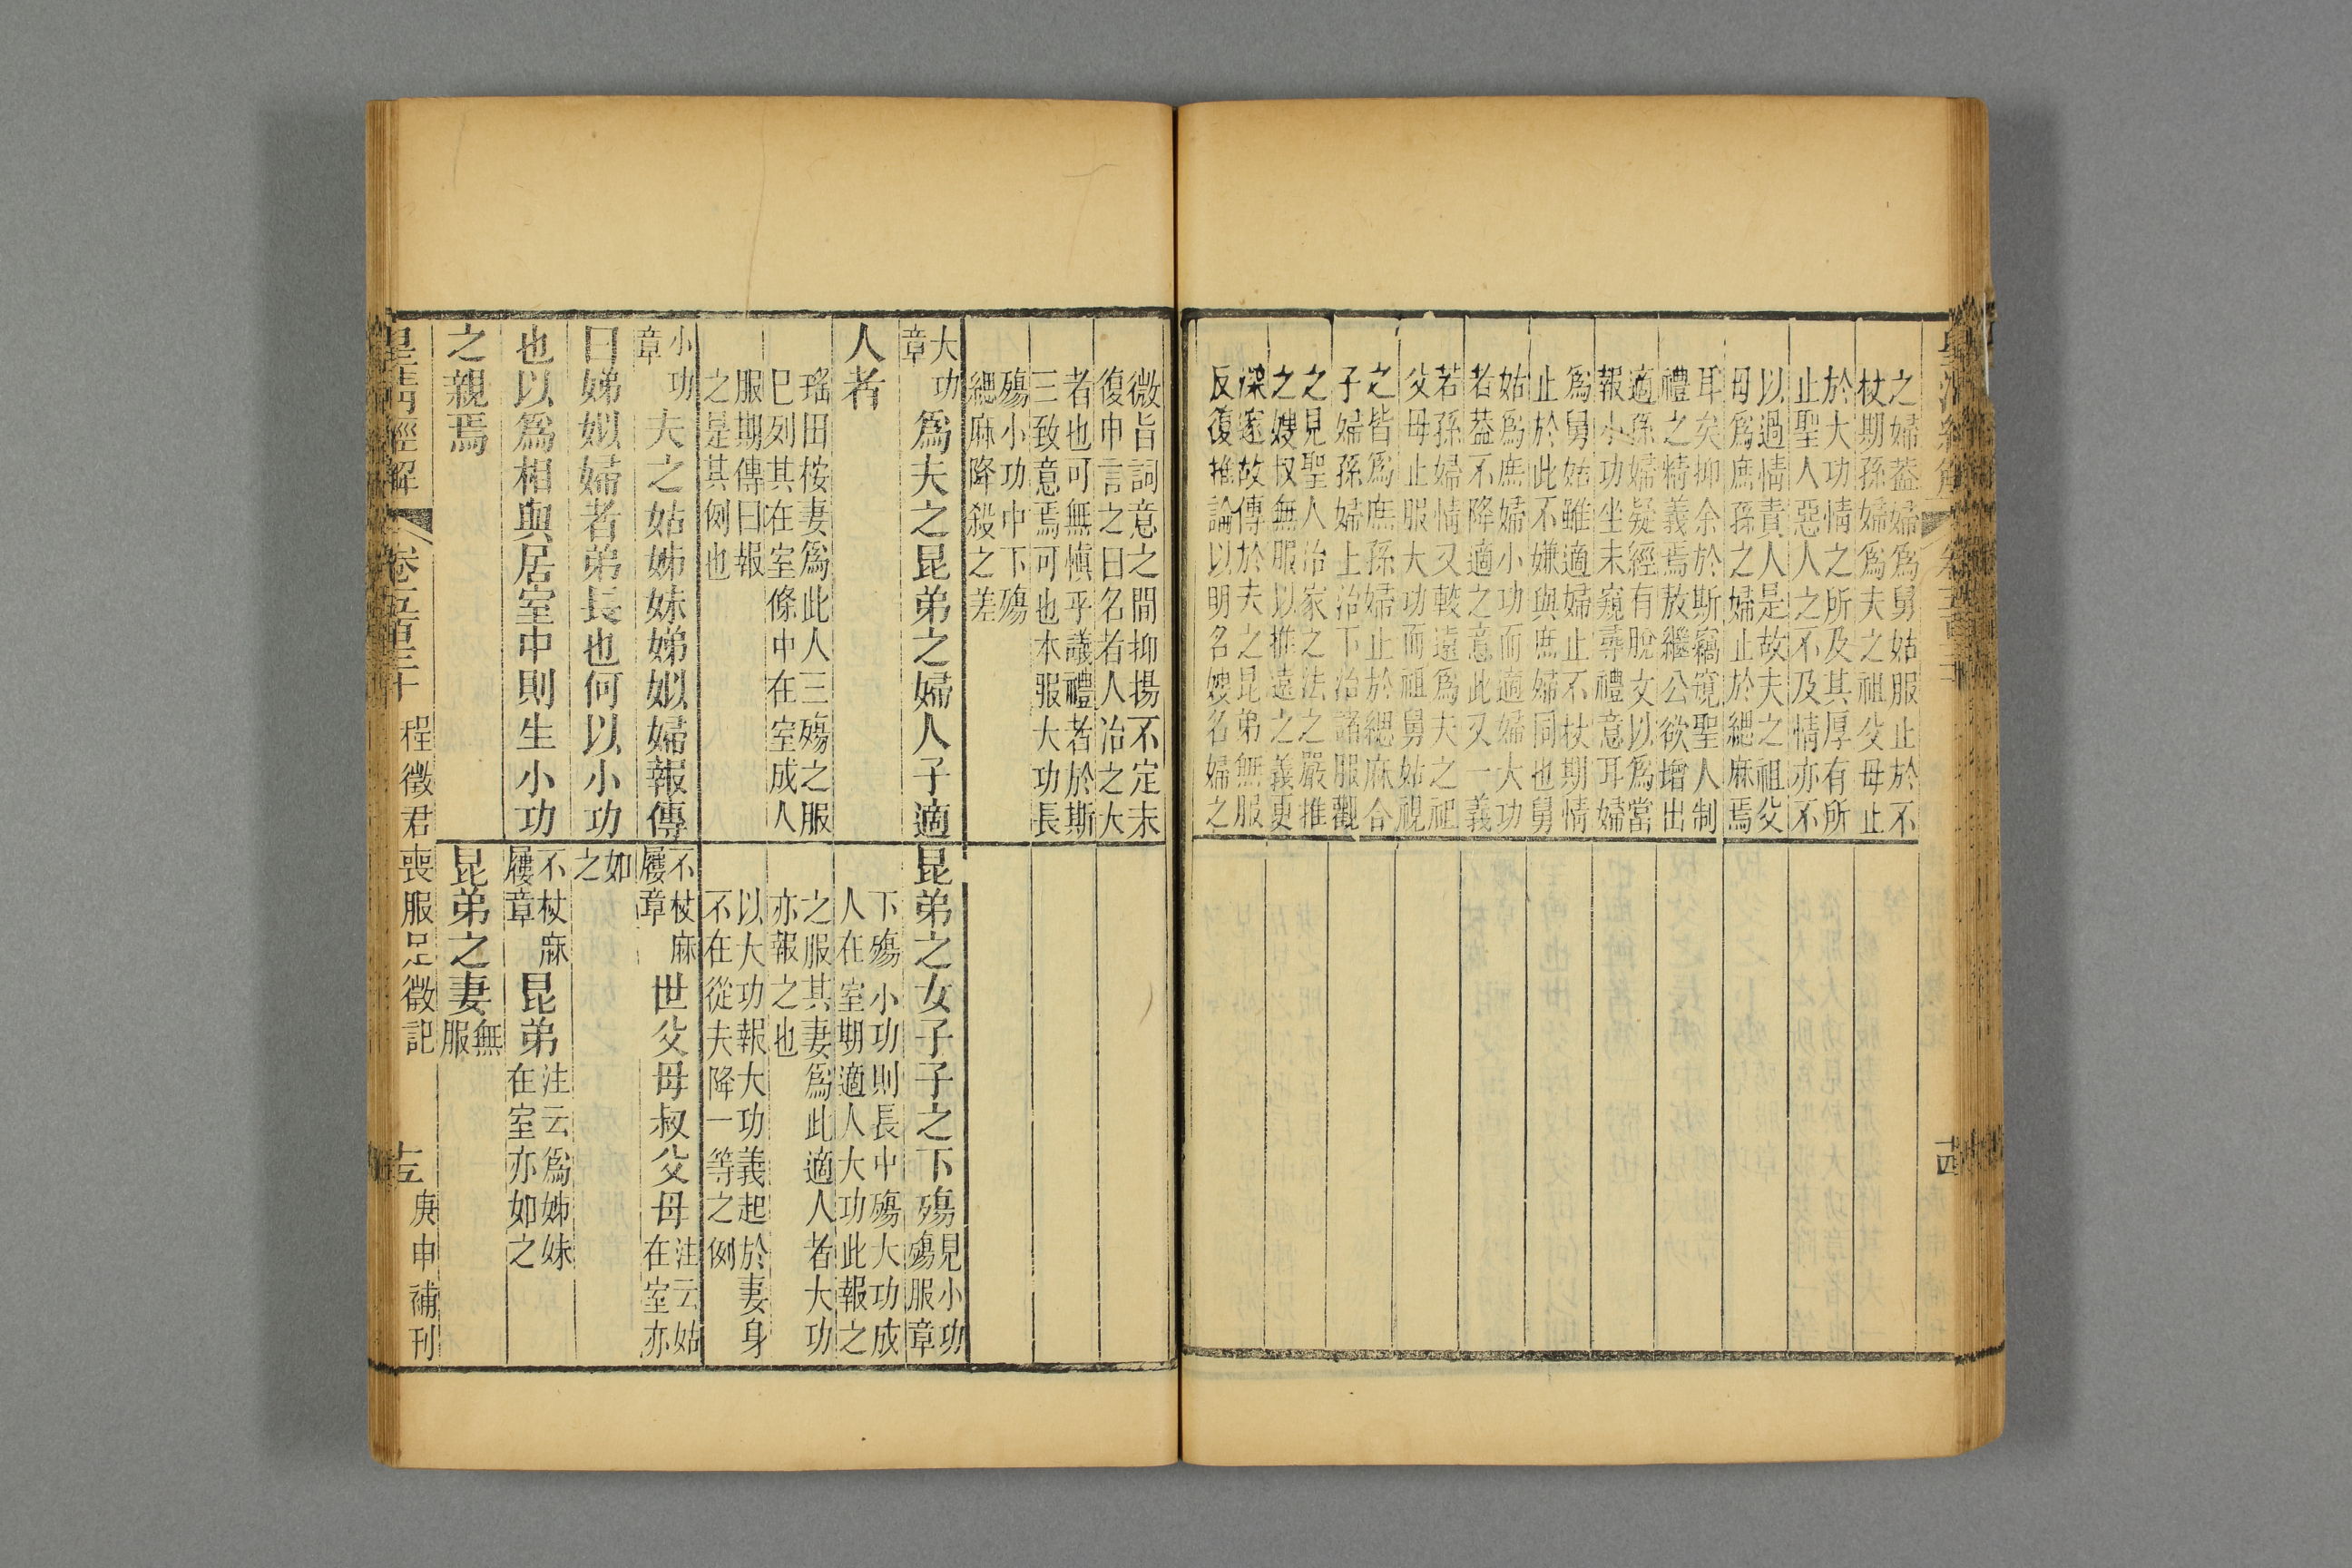 之婦葢婦爲舅姑服止於不
杖期孫婦爲夫之祖父母止
於大功情之所及其厚有所
止聖人惡人之不及情亦不
以過情責人是故夫之祖父
母爲庶孫之婦止於緦麻焉
耳矣抑余於斯竊寛聖人制
禮之精義焉敖繼公欲增出
適孫婦疑經有脫文以爲當
報小功坐未窺尋禮意耳婦
爲舅姑雖適婦止不杖期情
止於此不嫌與庶婦同也舅
姑爲庶婦小功而適婦大功
者葢不降適之意此又一義
若孫婦情又較遠爲夫之祖
父母止服大功而祖舅姑視
之皆爲庶孫婦止於緦麻合
子婦孫婦上治下治諸服觀
之見聖人治家之法之嚴推
之嫂叔無服以推遠之義更
深邃故傳於夫之昆弟無服
反復推論以明名嫂名婦之
十四
微旨詞意之間抑揚不定末
復申言之曰名者人治之大
者也可無愼乎議禮者於斯
三致意焉可也本服大功長
殤小功中下殤
緦麻降殺之差
大功章 爲夫之昆弟之婦人子適
人者
瑤田桉妻爲此人三殤之服
巳列其在室條中在室成人
服期傳曰報
之是其例也
小功章 夫之姑姊妹娣姒婦報傳
曰娣姒婦者弟長也何以小功
也以爲相與居室中則生小功
之親焉
昆弟之女子子之下殤 見小功殤服章
下殤小功則長中殤大功成
人在室期適人大功此報之
之服其妻爲此適人者大功
亦報之也
以大功報大功義起於妻身
不在從夫降一等之例
不杖麻屨章 世父母叔父母 注云姑在室亦
如之
不杖麻屨章 昆弟 注云爲姊妹在室亦如之
昆弟之妻 無服
皇淸經解 卷五百三十 程徵君喪服足徵記 十五 庚申補刊